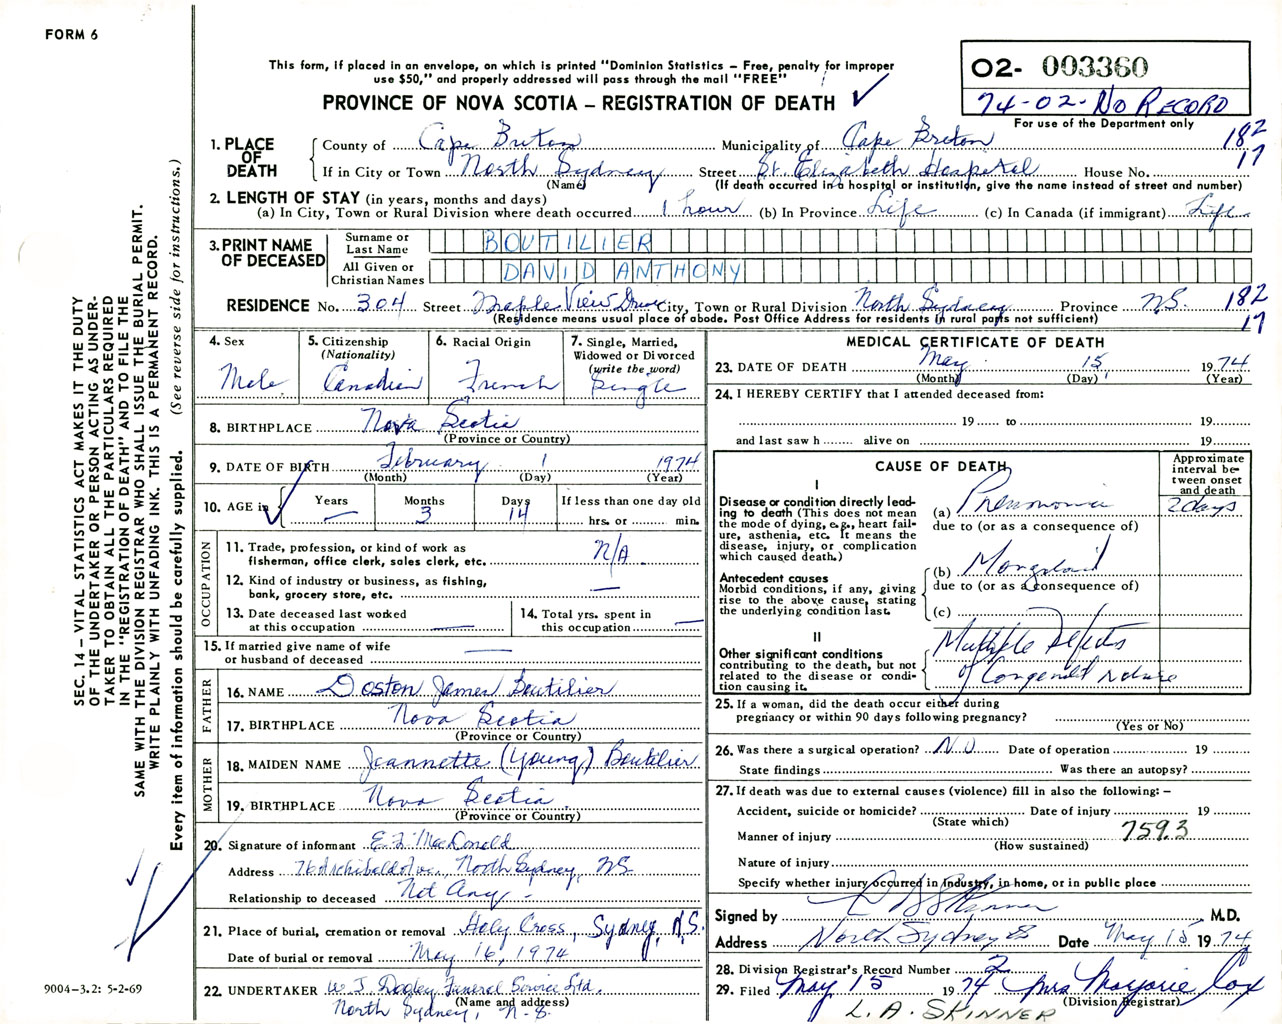 FORM 6
This form, if placed in an envelope, on which is printed "Dominion Statistics – Free, penalty for improper
use $50," and properly addressed will pass through the mail "FREE"
PROVINCE OF NOVA SCOTIA – REGISTRATION OF DEATH
02- 003360
74-02-No RECORD
For use of the Department only
1. PLACE OF DEATH
County of Cape Breton Municipality of Cape Breton 182
If in City or Town North Sydney Street St. Elizabeth Hospital House No. 17
(Name) (If death occurred in a hospital or institution, give the name instead of street and number)
2. LENGTH OF STAY (in years, months and days)
(a) In City, Town or Rural Division where death occurred 1 hour (b) In Province Life (c) In Canada (if immigrant) Life
3. PRINT NAME OF DECEASED
Surname or Last Name BOUTILIER
All Given or Christian Names DAVID ANTHONY
RESIDENCE No. 304 Street Maple View Drive City, Town or Rural Division North Sydney Province N.S. 182
(Residence means usual place of abode. Post Office Address for residents in rural parts not sufficient) 17
4. Sex Male
5. Citizenship (Nationality) Canadian
6. Racial Origin French
7. Single, Married, Widowed or Divorced (write the word) Single
8. BIRTHPLACE Nova Scotia
(Province or Country)
9. DATE OF BIRTH February 1 1974
(Month) (Day) (Year)
10. AGE in Years — Months 3 Days 14 If less than one day old hrs. or min.
OCCUPATION
11. Trade, profession, or kind of work as fisherman, office clerk, sales clerk, etc. N/A
12. Kind of industry or business, as fishing, bank, grocery store, etc. —
13. Date deceased last worked at this occupation —
14. Total yrs. spent in this occupation —
15. If married give name of wife or husband of deceased —
FATHER
16. NAME Doston James Boutilier
17. BIRTHPLACE Nova Scotia
(Province or Country)
MOTHER
18. MAIDEN NAME Jeannette (Young) Boutilier
19. BIRTHPLACE Nova Scotia
(Province or Country)
20. Signature of informant E. F. MacDonald
Address North Sydney, NS
Relationship to deceased Not Any -
21. Place of burial, cremation or removal Holy Cross, Sydney, N.S.
Date of burial or removal May 16, 1974
22. UNDERTAKER W. J. Dooley Funeral Service Ltd.
(Name and address)
North Sydney, N.S.
MEDICAL CERTIFICATE OF DEATH
23. DATE OF DEATH May 15, 1974
(Month) (Day) (Year)
24. I HEREBY CERTIFY that I attended deceased from:
19 to 19
and last saw h alive on 19
CAUSE OF DEATH
Approximate interval between onset and death
I
Disease or condition directly leading to death (This does not mean the mode of dying, e.g., heart failure, asthenia, etc. It means the disease, injury, or complication which caused death.)
(a) Pneumonia 2 days
due to (or as a consequence of)
Antecedent causes
Morbid conditions, if any, giving rise to the above cause, stating the underlying condition last.
(b) Mongoloid
due to (or as a consequence of)
(c)
II
Other significant conditions
contributing to the death, but not related to the disease or condition causing it.
Multiple Defects
of Congenital nature
25. If a woman, did the death occur either during
pregnancy or within 90 days following pregnancy?
(Yes or No)
26. Was there a surgical operation? NO Date of operation 19
State findings Was there an autopsy?
27. If death was due to external causes (violence) fill in also the following: –
Accident, suicide or homicide? Date of injury 19
(State which)
Manner of injury 759.3
(How sustained)
Nature of injury
Specify whether injury occurred in industry, in home, or in public place
Signed by Skinner M.D.
Address North Sydney Date May 15 1974
28. Division Registrar's Record Number 2
29. Filed May 15 1974 Mrs Marjorie Cox
(Division Registrar)
L.A. SKINNER
SEC. 14 – VITAL STATISTICS ACT MAKES IT THE DUTY
OF THE UNDERTAKER OR PERSON ACTING AS UNDER-
TAKER TO OBTAIN ALL THE PARTICULARS REQUIRED
IN THE "REGISTRATION OF DEATH" AND TO FILE THE
SAME WITH THE DIVISION REGISTRAR WHO SHALL ISSUE THE BURIAL PERMIT.
WRITE PLAINLY WITH UNFADING INK. THIS IS A PERMANENT RECORD.
Every item of information should be carefully supplied. (See reverse side for instructions.)
9004-3.2: 5-2-69